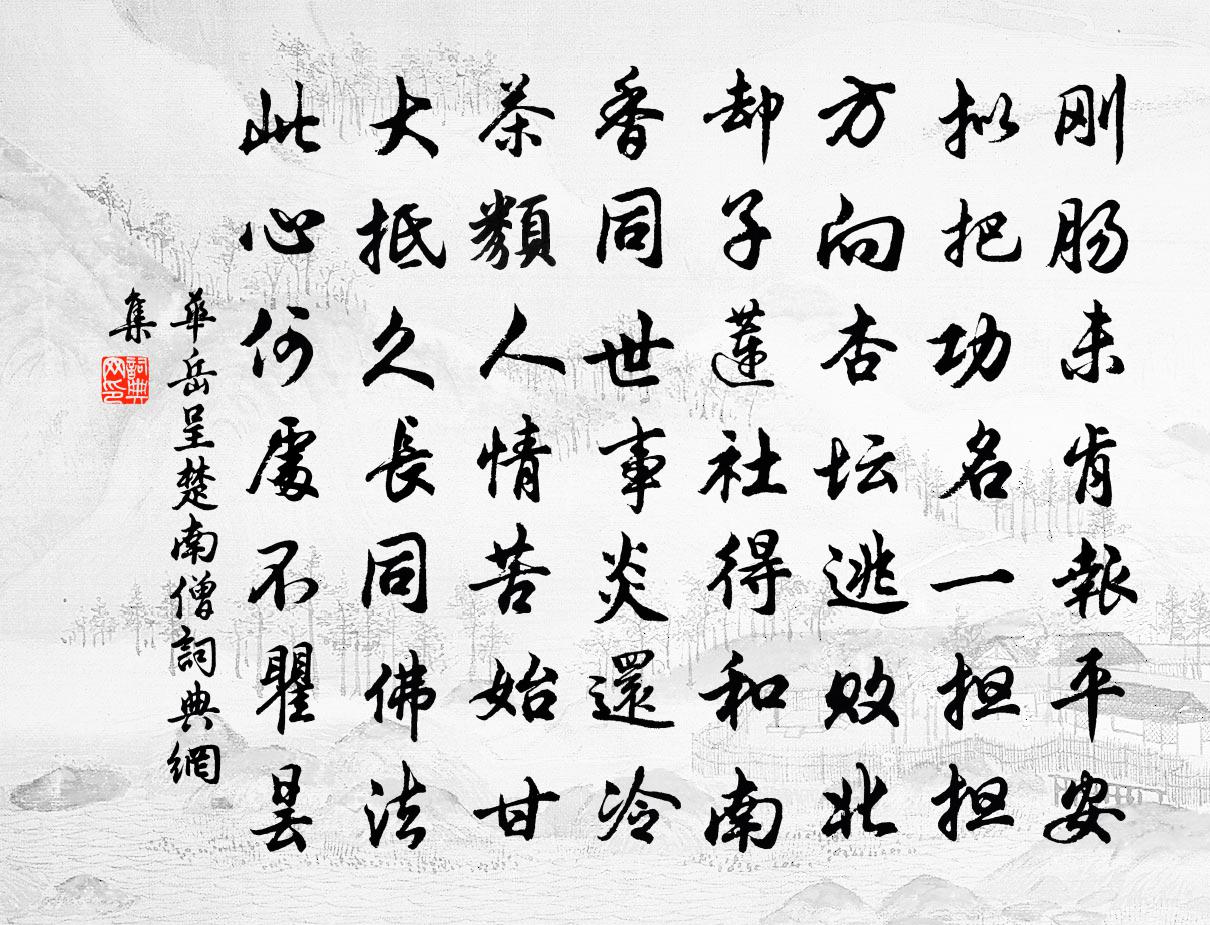 刚肠未肯報平安
拟把功名一担担
方向杏坛逃败北
却子蓮社得和南
香同世事炎還冷
茶類人情苦始甘
大抵久長同佛法
此心何處不瞿昙
華岳呈楚南僧詞典網
集
詞典
网印